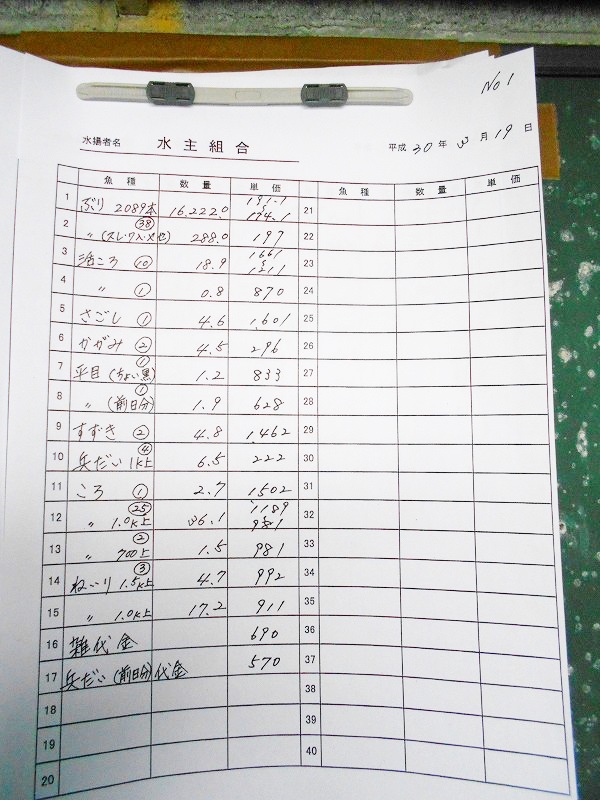 No 1
水揚者名 水主組合 平成 30 年 3 月 19 日
魚種 数量 単価 魚種 数量 単価
1 ぶり 2089本 16,222.0 191.1 ~ 174.1 21
2 〃 (スレ・ワ入・メセ) 38 288.0 197 22
3 活ころ ⑩ 18.9 1,661 ~ 1,211 23
4 〃 ① 0.8 870 24
5 さごし ① 4.6 1,601 25
6 かがみ ② 4.5 296 26
7 平目 (ちょい黒) ① 1.2 833 27
8 〃 (前日分) ① 1.9 628 28
9 すずき ② 4.8 1,462 29
10 兵だい 1K上 ④ 6.5 222 30
11 ころ ① 2.7 1,502 31
12 〃 1.0K上 ㉕ 36.1 1,189 ~ 981 32
13 〃 700上 ② 1.5 981 33
14 ねいり 1.5K上 ③ 4.7 992 34
15 〃 1.0K上 17.2 911 35
16 雑代金 690 36
17 兵だい (前日分) 代金 570 37
18 38
19 39
20 40